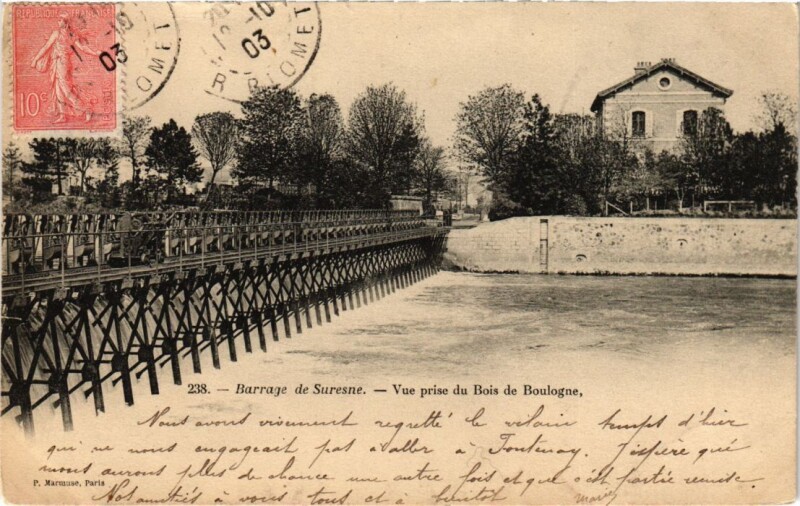 REPUBLIQUE FRANÇAISE
10c
10
03
10
03
238. — Barrage de Suresne. — Vue prise du Bois de Boulogne,
Nous avons vivement regretté le vilain temps d'hier
qui ne nous engageait pas à aller à Fontenay. J'espère que
nous aurons plus de chance une autre fois et que c'est partie remise.
P. Marmuse, Paris
Nos amitiés à vous tous et à bientôt